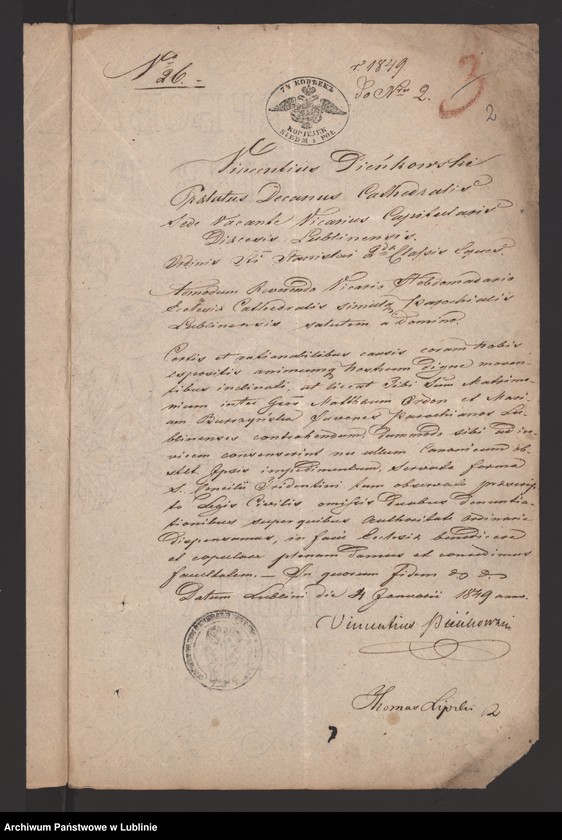 No 26.
r 1849
Do Nro 2.
3
2
7½ КОПѢЕКЪ
KOPIEJEK
SIEDM I PÓŁ
Vincentius Pieńkowski
Prælatus Decanus Cathedralis
Sede Vacante Vicarius Capitularis
Diœcesis Lublinensis.
Ordinis Sti Stanislai 2dæ Classis Eques.
Admodum Reverendo Vicario Hebdomadario
Ecclesiæ Cathedralis simulq Parochialis
Lublinensis salutem a Domino.
Certis et rationalibus causis coram nobis
expositis animumq nostrum digne moven-
tibus inclinati, ut liceat Tibi Matrimo-
nium inter Matthæum Orden et Mari-
am Burzyńska Juvenes Parochianos Lu-
blinenses contrahendum, dummodo sibi ad in-
vicem consenserint nec ullum Canonicum ob-
stet Ipsis impedimentum, servata forma
S. Concilii Tridentini tum observato præscrip-
to Legis Civilis omissis duabus denuntia-
tionibus superquibus authoritate Ordinaria
dispensamus, in facie Ecclesiæ benedicere
et copulare plenam damus et concedimus
facultatem. — In quorum fidem
Datum Lublini die 4 Januarii 1849 anno.
Vincentius Pieńkowski
Thomas Lipski
2
Archiwum Państwowe w Lublinie